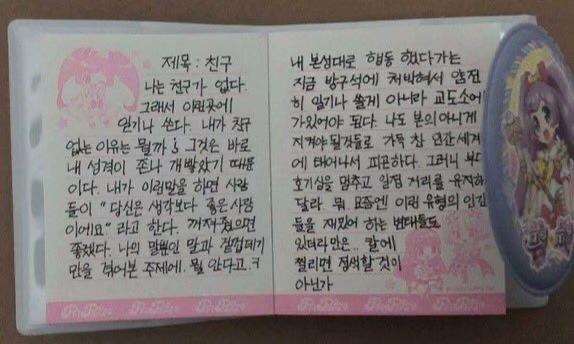 제목 : 친구
나는 친구가 없다.
그래서 이런곳에
일기나 쓴다. 내가 친구
없는 이유는 뭘까? 그것은 바로
내 성격이 존나 개빻았기 때문
이다. 내가 이런말을 하면 사람
들이 "당신은 생각보다 좋은 사람
이에요" 라고 한다. 꺼져줬으면
좋겠다. 나의 말뿐인 말과 겉껍데기
만을 겪어본 주제에. 뭘 안다고.ㅋ
내 본성대로 행동 했다가는
지금 방구석에 쳐박혀서 얌전
히 일기나 쓸게 아니라 교도소에
가있어야 된다. 나도 본의 아니게
지켜야 될것들로 가득 찬 인간세계
에 태어나서 피곤하다. 그러니 부디
호기심을 멈추고 일정 거리를 유지해
달라. 뭐 요즘엔 이런 유형의 인간
들을 재밌어 하는 변태들도
있더라만은.. 칼에
찔리면 정색할 것이
아닌가